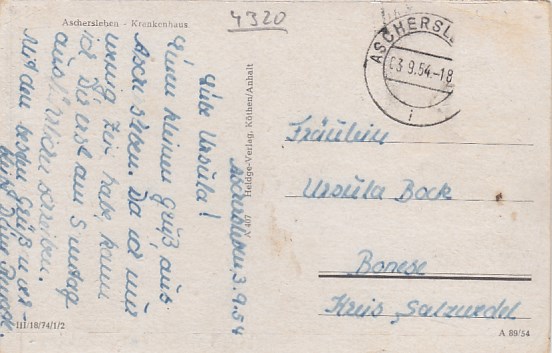 4320
Aschersleben - Krankenhaus
Aschersleben 3.9.54
Liebe Ursula!
Einen kleinen Gruß aus
Aschersleben. Da ich nur
wenig Zeit habe, kann
ich Dir erst am Sonntag
ausführlich schreiben.
Mit den besten Grüß u. ver-
A 407 Heldge-Verlag, Köthen/Anhalt
III/18/74/1/2
ASCHERSL
03.9.54.-18
i
Fräulein
Ursula Bock
Bonese
Kreis Salzwedel
A 89/54